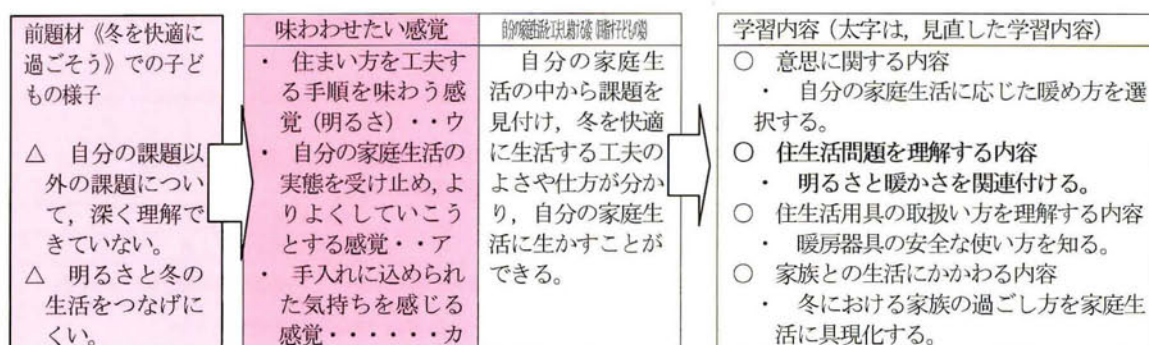 前題材《冬を快適に
過ごそう》での子ど
もの様子
△ 自分の課題以
外の課題につい
て，深く理解で
きていない。
△ 明るさと冬の
生活をつなげに
くい。
味わわせたい感覚
・ 住まい方を工夫す
る手順を味わう感
覚（明るさ）・・ウ
・ 自分の家庭生活の
実態を受け止め，よ
りよくしていこう
とする感覚・・ア
・ 手入れに込められ
た気持ちを感じる
感覚・・・・・・カ
自分の家庭生
活の中から課題を
見付け，冬を快適
に生活する工夫の
よさや仕方が分か
り，自分の家庭生
活に生かすことが
できる。
学習内容（太字は，見直した学習内容）
○ 意思に関する内容
・ 自分の家庭生活に応じた暖め方を選
択する。
○ 住生活問題を理解する内容
・ 明るさと暖かさを関連付ける。
○ 住生活用具の取扱い方を理解する内容
・ 暖房器具の安全な使い方を知る。
○ 家族との生活にかかわる内容
・ 冬における家族の過ごし方を家庭生
活に具現化する。